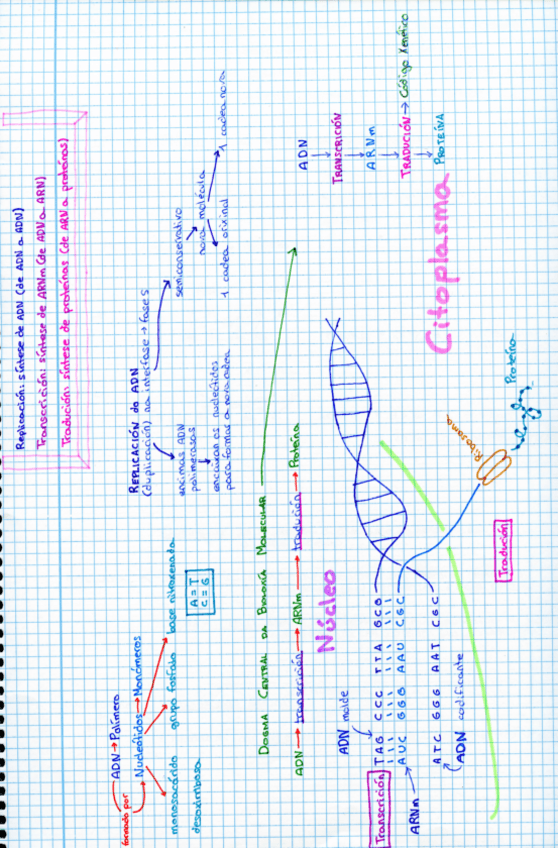 Replicación: síntese de ADN (de ADN a ADN)
Transcrición: síntese de ARNm (de ADN a ARN)
Tradución: síntese de proteínas (de ARN a proteínas)
ADN → Polímero
formado por
Nucleótidos → Monómeros
monosacárido
desoxirribosa
grupo fosfato
base nitroxenada
A = T
C = G
REPLICACIÓN do ADN
(duplicación) na interfase → fase S
encimas ADN
polimerasas
encaixan os nucleótidos
para formar a nova cadea
semiconservativo
nova molécula
1 cadea orixinal
1 cadea nova
DOGMA CENTRAL DA BIOLOXÍA MOLECULAR
ADN → transcrición → ARNm → tradución → Proteína
ADN
TRANSCRICIÓN
ARNm
TRADUCIÓN → Código Xenético
PROTEÍNA
Núcleo
Citoplasma
Transcrición
ADN molde
TAG CCC TTA GCG
AUC GGG AAU CGC
ARNm
ATC GGG AAT CGC
ADN codificante
Tradución
Ribosoma
Proteína